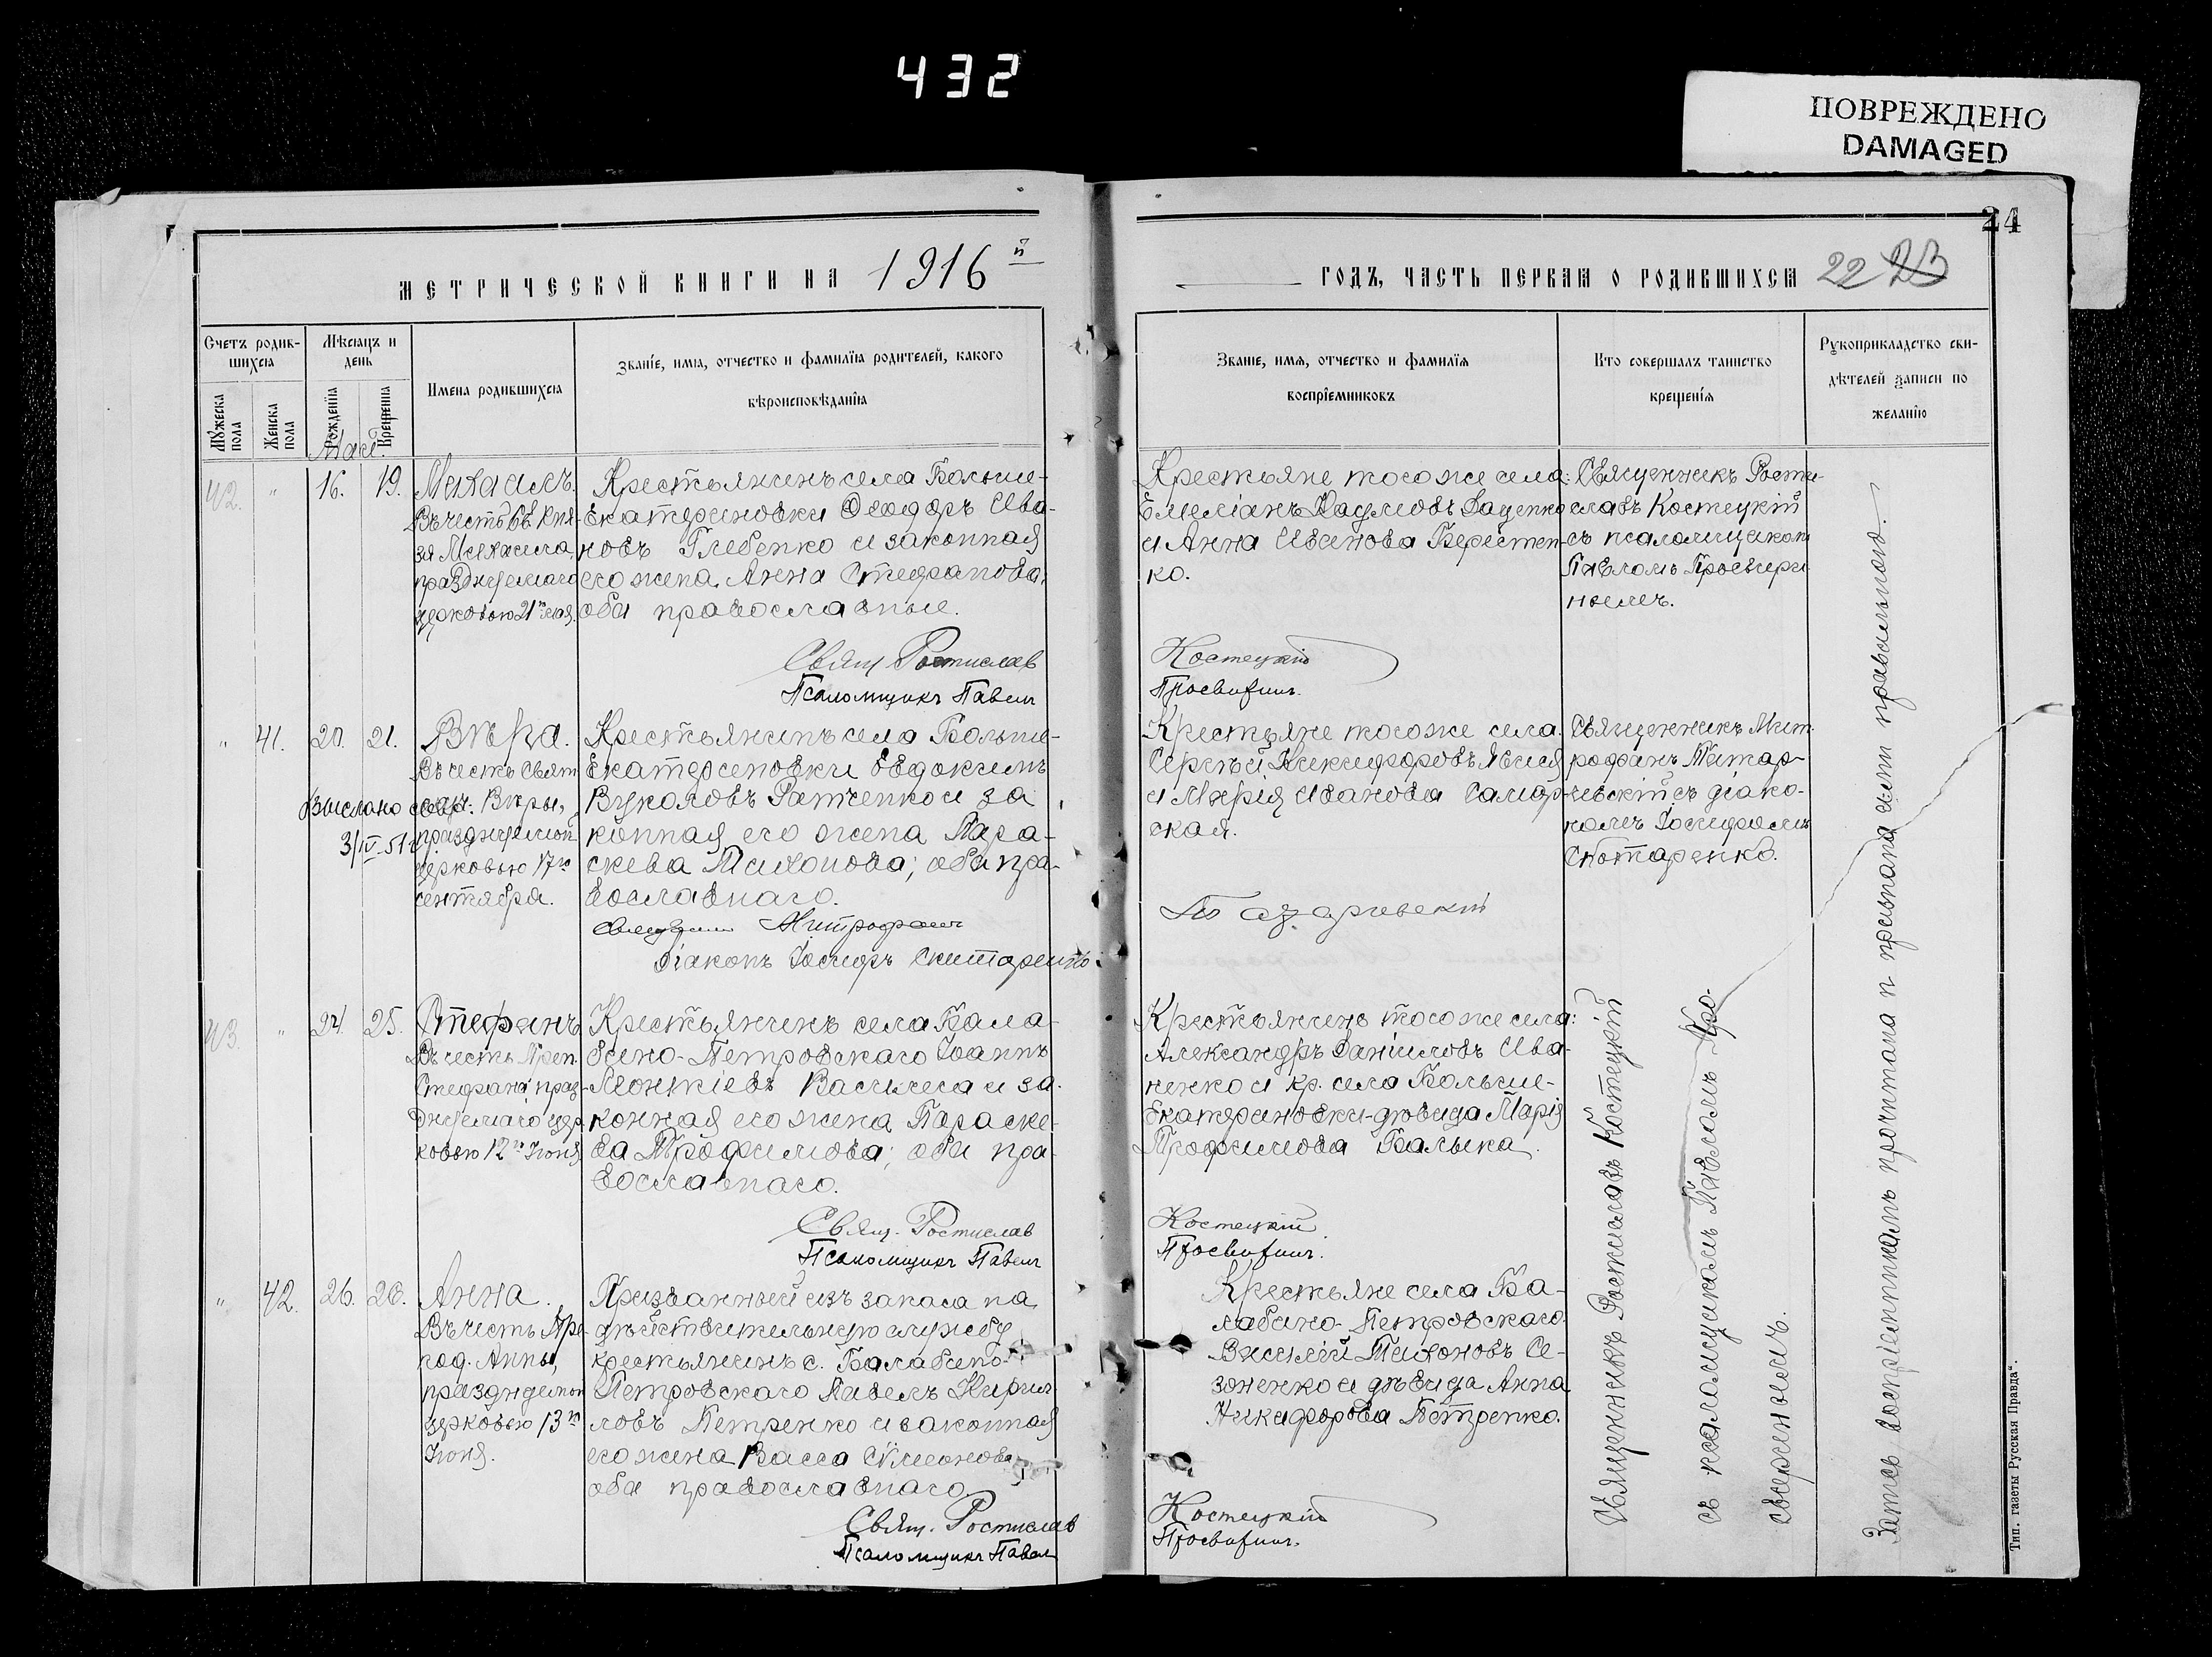 432
ПОВРЕЖДЕНО
DAMAGED
24
МЕТРИЧЕСКОЙ КНИГИ НА 1916й
ГОДЪ, ЧАСТЬ ПЕРВАЯ О РОДИВШИХСЯ 22 23
Счетъ родив-
шихся
Мѣсяцъ и
день
Мужеска
пола
Женска
пола
Рожденїя
Крещенїя
Имена родившихся
Званїе, имя, отчество и фамилїя родителей, какого
вѣроисповѣданїя
Званїе, имя, отчество и фамилїя
воспрїемниковъ
Кто совершалъ таинство
крещенїя
Рукоприкладство сви-
дѣтелей записи по
желанїю
Май.
42. " 16. 19.
Михаилъ.
Въ честь бл. Кня-
зя Михаила,
празднуемаго
церковью 21го мая.
Крестьянинъ села Больше-
Екатериновки Ѳеодоръ Ива-
новъ Глебенко и законная
его жена Анна Стефанова;
оба православные.
Свящ Ростислав
Псаломщикъ Павелъ
Крестьяне того же села:
Емеліанъ Даценко
и Анна Иванова
ко.
Костецкій
Просвиринъ.
Священникъ Рости-
славъ Костецкій
съ псаломщикомъ
Павломъ Просвири-
нымъ.
" 41. 20. 21.
Вѣра.
Въ честь Свят.
муч. Вѣры,
празднуемой
церковью 17го
сентября.
Выслано свид.
3/IV-51
Крестьянинъ села Больше-
Екатериновки Евдокимъ
Вуколовъ Ратченко и за
конная его жена Пара-
скева Тихонова; оба пра-
вославнаго.
Священник Митрофанъ
Діаконъ Іосифъ Скитаренко.
Крестьяне того же села:
Сергѣй Никифоровъ
и Марія Иванова Самар-
ская.
Священникъ Мит-
рофанъ
съ діако-
номъ Іосифомъ
Скотаренко.
43. " 24. 25.
Стефанъ
Въ честь Преп.
Стефана праз-
днуемаго цер-
ковью 12го Іюня.
Крестьянинъ села Бала-
бино-Петровскаго Іоаннъ
Леонтіевъ Васичега и за-
конная его жена Параске-
ва Трофимова; оба пра-
вославнаго.
Свящ. Ростислав
Псаломщикъ Павелъ
Крестьянинъ того же села:
Александръ Даніиловъ Ива-
ненко и кр. села Больше-
Екатериновки-дѣвица Марія
Трофимова Балыка.
Костецкій
Просвиринъ.
" 42. 26. 26.
Анна.
Въ честь Пре-
под. Анны,
празднуемой
церковью 13го
Іюня.
Призванный изъ запаса на
дѣйствительную службу
крестьянинъ с. Балабино-
Петровскаго Павелъ Кирил-
ловъ Петренко и законная
его жена Васса Симонова
оба православнаго.
Свящ. Ростислав
Псаломщикъ Павелъ
Крестьяне села Ба-
лабино-Петровскаго
Василій Тихоновъ Се-
зоненко и дѣвица Анна
Никифорова Петренко.
Костецкій
Просвиринъ.
Священникъ Ростиславъ Костецкій
съ псаломщикомъ Павломъ Про-
свиринымъ.
Запись воспріемникамъ прочитана и признана ими правильною.
Тип. газеты Русская Правда".